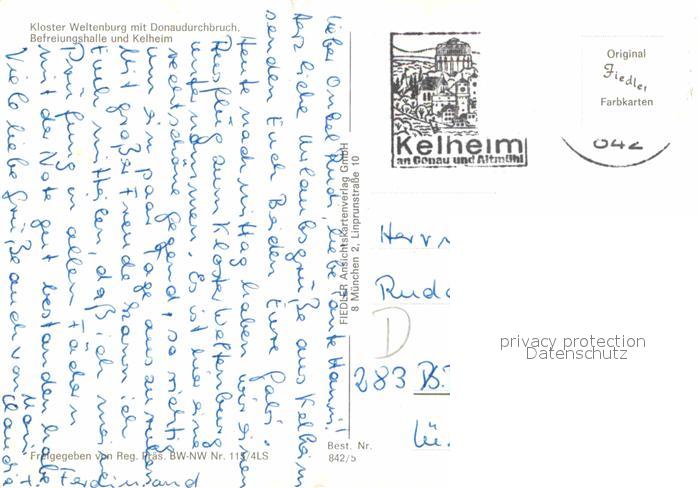 Kloster Weltenburg mit Donaudurchbruch,
Befreiungshalle und Kelheim
Lieber Onkel Rudi, liebe Tante Hanni!
Herzliche Urlaubsgrüße aus Kelheim
senden Euch Beiden Eure Gabi.
Heute nachmittag haben wir einen
Ausflug zum Kloster Weltenburg
unternommen. Es ist hier eine
recht schöne Gegend, so richtig
um ein paar Tage auszuruhen.
Mit großer Freude kann ich
Euch mitteilen, daß ich meine
Prüfung in allen Fächern
mit der Note gut bestanden habe
Viele liebe Grüße auch von
Claudia
Ferdinand
FIEDLER Ansichtskartenverlag GmbH
8 München 2, Linprunstraße 10
Freigegeben von Reg. Präs. BW-NW Nr. 113/4LS
Best. Nr.
842/5
Kelheim
an Donau und Altmühl
Original
Fiedler
Farbkarten
042
Herrn
D
283
privacy protection
Datenschutz